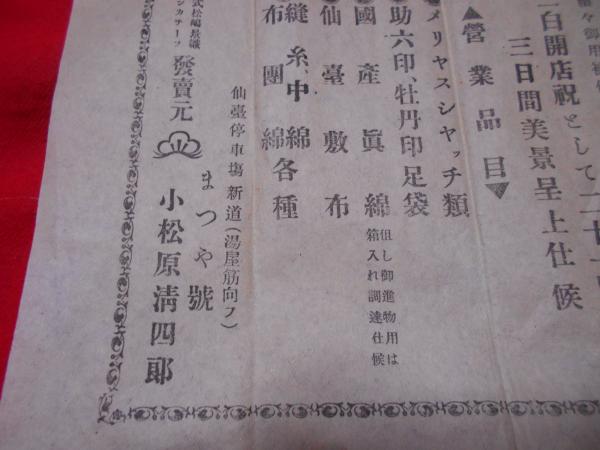 日開店祝として二十一日
三日間美景呈上仕候
▲營業品目▼
メリヤスシャッチ類
助六印、牡丹印足袋
●國產眞綿 但し御進物用は箱入れ調達仕候
●仙臺敷布
●縫糸、中綿各種
布團綿
仙臺停車場新道(湯屋筋向フ)
發賣元 まつや號
小松原清四郎